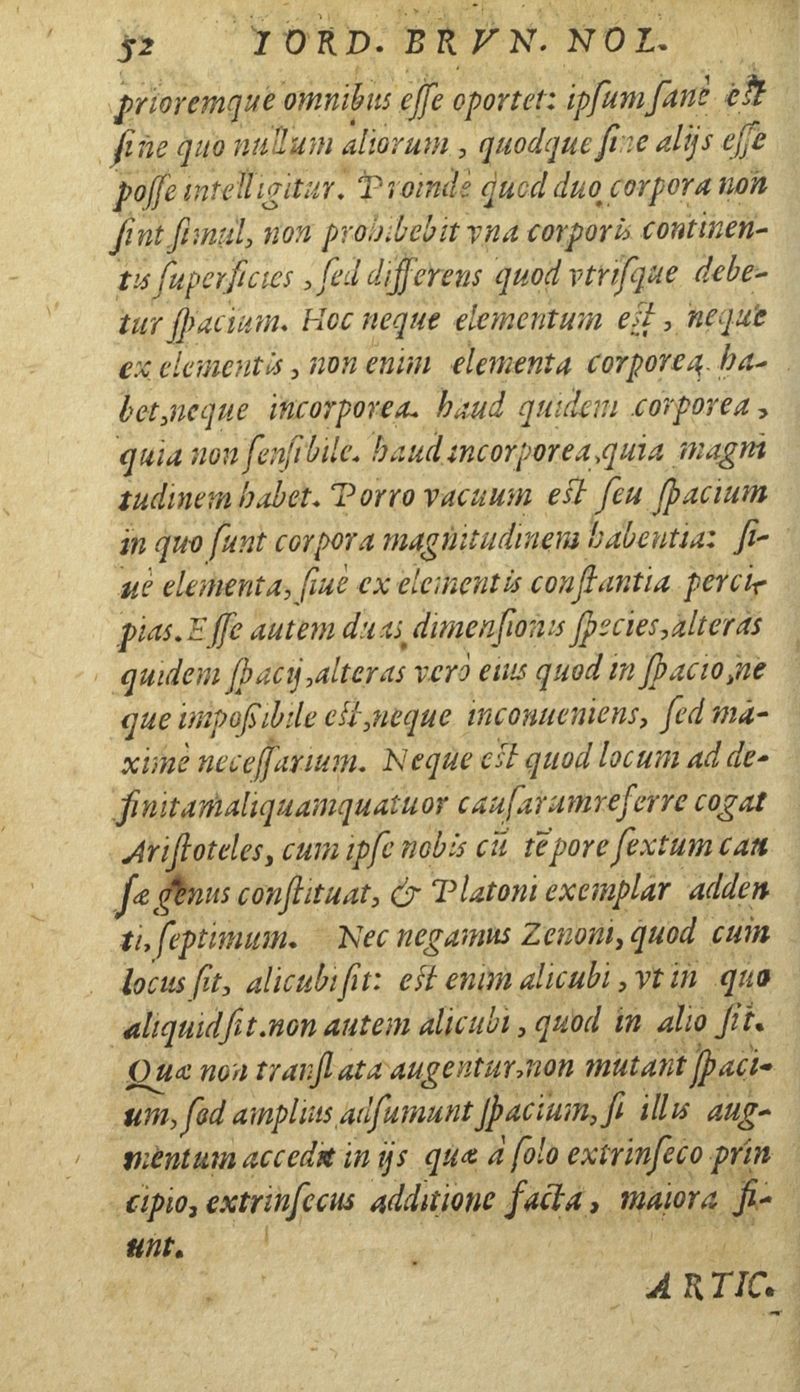 52 IORD. BRVN. NOL.
prioremque omnibus eſſe oportet: ipſum ſanè eſt
ſine quo nullum aliorum, quodque ſine alijs eſſe
poſſe intelligitur. Proindè quod duo corpora non
ſint ſimul, non prohibebit vna corporis continen-
tis ſuperficies, ſed differens quod vtriſque debe-
tur ſpacium. Hoc neque elementum eſt, neque
ex elementis, non enim elementa corporea ha-
bet, neque incorporea. haud quidem corporea,
quia non ſenſibile. haud incorporea, quia magni
tudinem habet. Porro vacuum eſt ſeu ſpacium
in quo ſunt corpora magnitudinem habentia: ſi-
uè elementa, ſiuè ex elementis conſtantia perci-
pias. Eſſe autem duas dimenſionis ſpecies, alteras
quidem ſpacij, alteras verò eius quod in ſpacio, ne
que impoſsibile eſt, neque inconueniens, ſed má-
ximè neceſſarium. Neque eſt quod locum ad de-
finitam aliquam quatuor cauſarum referre cogat
Ariſtoteles, cum ipſe nobis cũ tẽpore ſextum cau
ſæ genus conſtituat, & Platoni exemplar adden
ti, ſeptimum. Nec negamus Zenoni, quod cum
locus ſit, alicubi ſit: eſt enim alicubi, vt in quo
aliquid ſit. non autem alicubi, quod in alio ſit.
Quæ non tranſlata augentur, non mutant ſpaci-
um, ſed amplius adſumunt ſpacium, ſi illis aug-
mentum accedit in ijs quæ à ſolo extrinſeco prin
cipio, extrinſecus additione facta, maiora fi-
unt.
ARTIC.